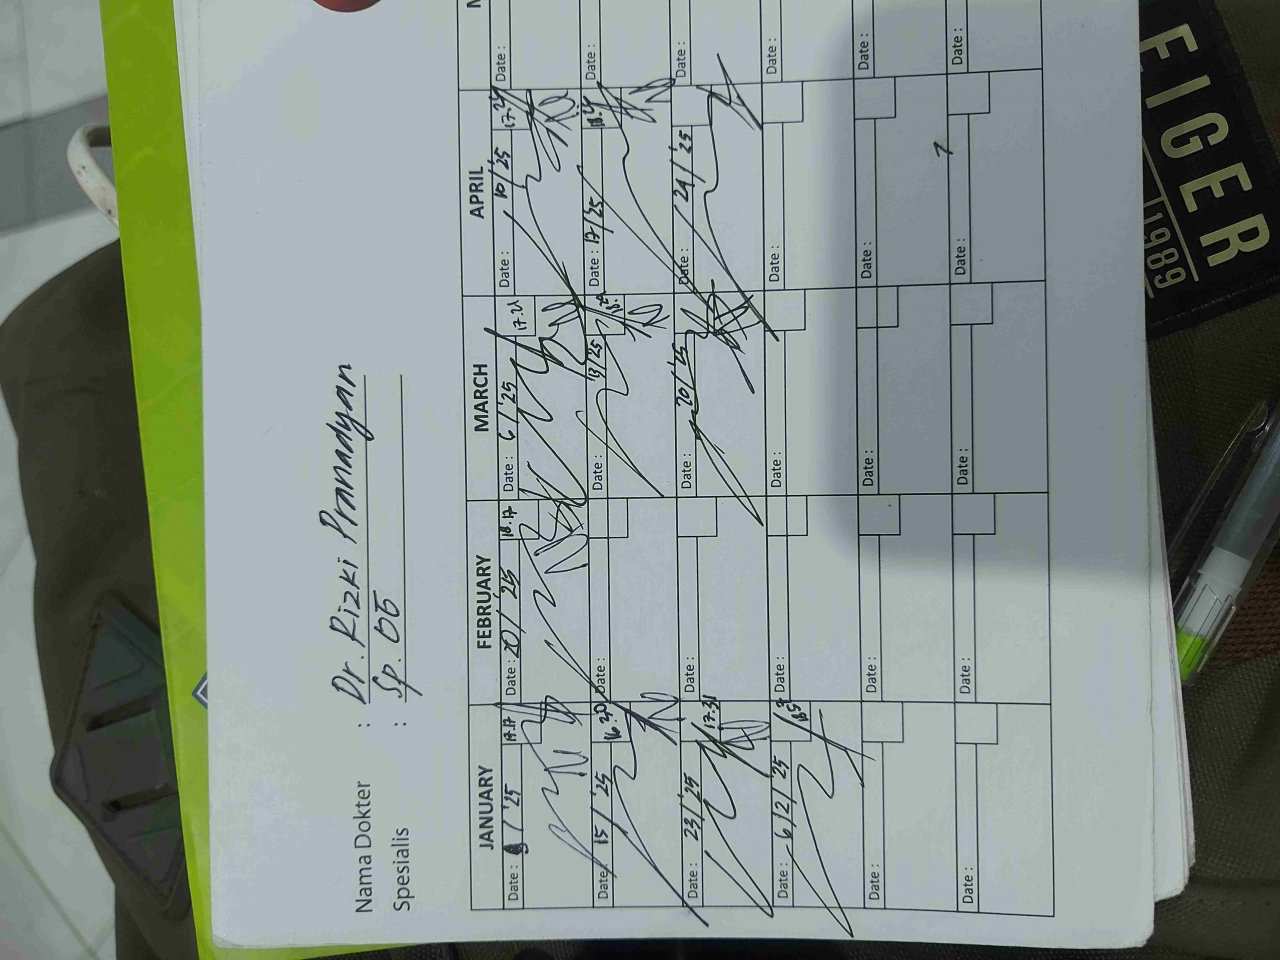 Nama Dokter : Dr. Rizki Pramadyan
Spesialis : Sp. OG
JANUARY FEBRUARY MARCH APRIL
Date : 9/'25 17.17 Date : 20/'25 18.17 Date : 6/'25 17.21 Date : 10/'25 17.24 Date :
Date : 15/'25 16.20 Date : Date : 13/'25 Date : 17/25 Date :
Date : 23/'25 17.31 Date : Date : 20/'25 Date : 24/'25 Date :
Date : 6/2/'25 Date : Date : Date : Date :
Date : Date : Date : Date : Date :
Date : Date : Date : Date : Date :
EIGER
1989